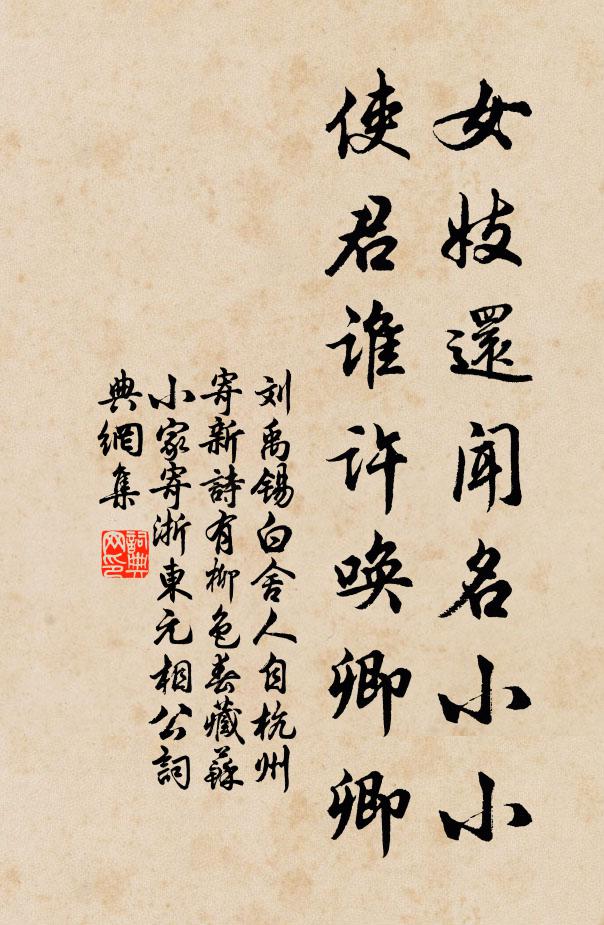 女妓還闻名小小
使君谁许唤卿卿
刘禹锡白舍人自杭州
寄新詩有柳色春藏蘇
小家寄浙東元相公詞
典網集
詞典
网印